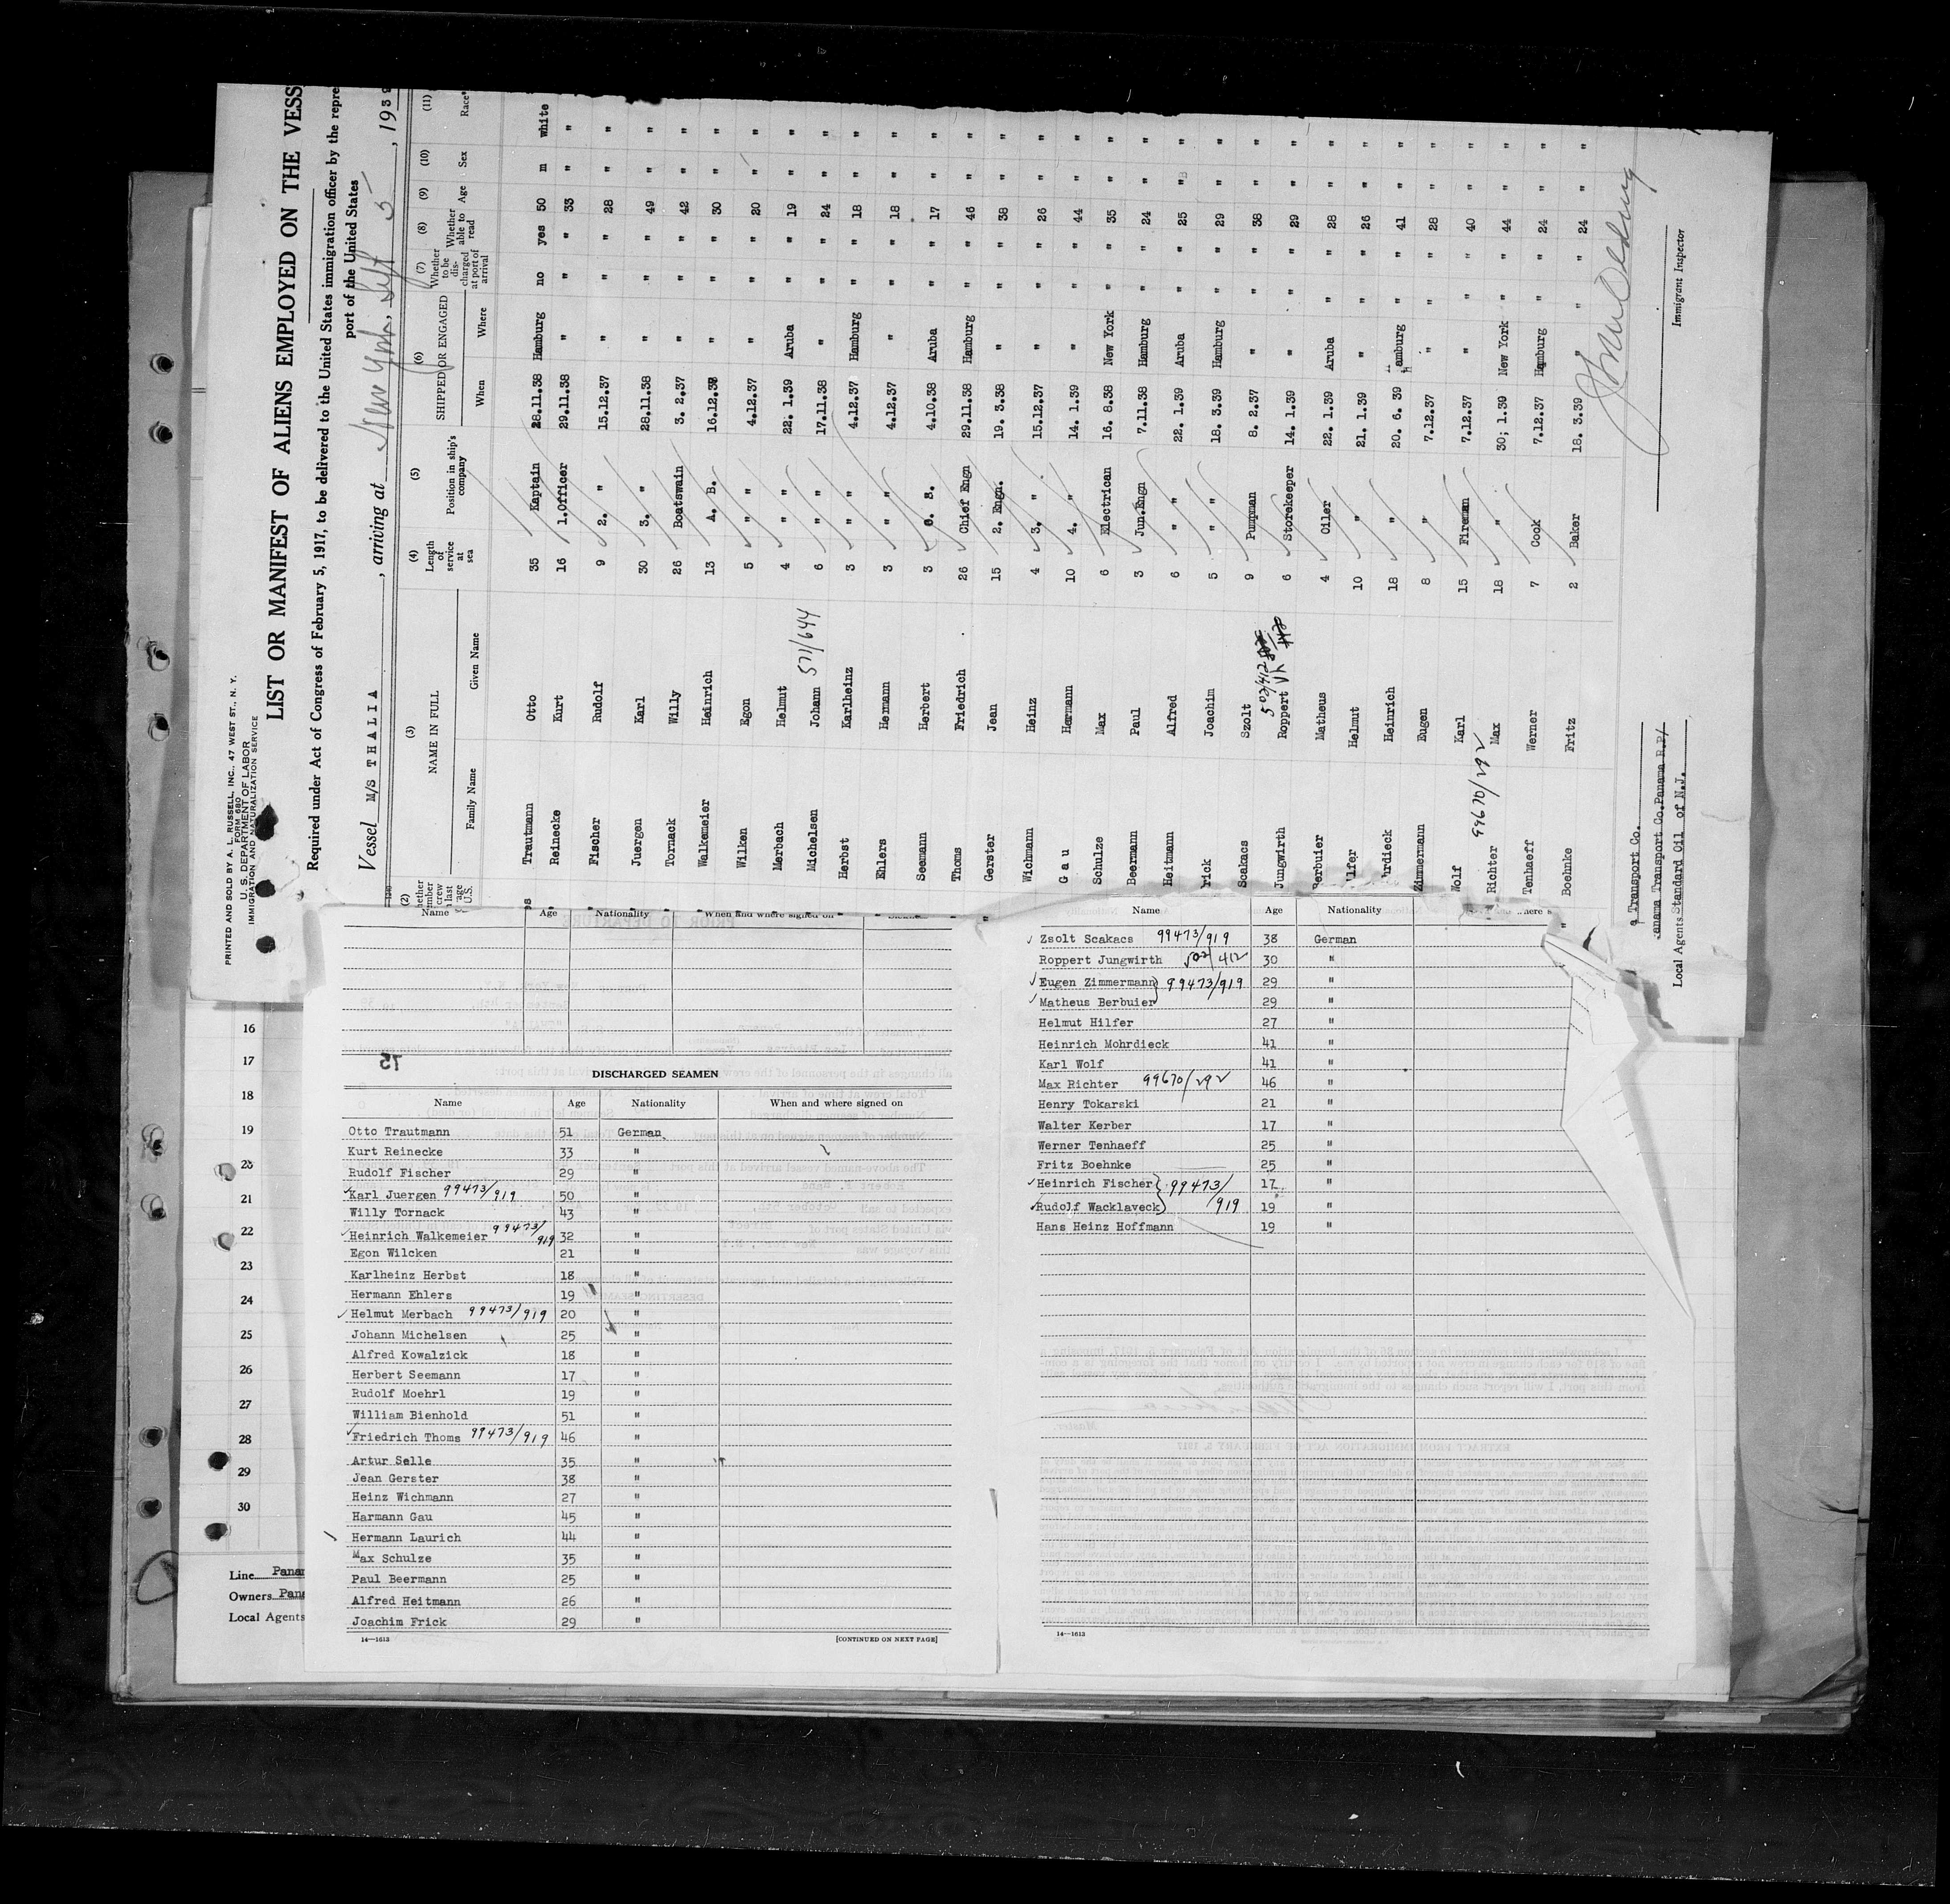 PRINTED AND SOLD BY A. L. RUSSELL, INC., 47 WEST ST., N. Y.
FORM 680
U. S. DEPARTMENT OF LABOR
IMMIGRATION AND NATURALIZATION SERVICE
LIST OR MANIFEST OF ALIENS EMPLOYED ON THE VESS
Required under Act of Congress of February 5, 1917, to be delivered to the United States immigration officer by the repre
port of the United States
Vessel M/S THALIA, arriving at New York, Sept 5, 1939
(2) (3) (4) (5) (6) (7) (8) (9) (10) (11)
NAME IN FULL Length of service at sea Position in ship's company SHIPPED OR ENGAGED Whether to be discharged at port of arrival Whether able to read Age Sex Race*
Family Name Given Name When Where
Trautmann Otto 35 Kaptain 28.11.38 Hamburg no yes 50 m white
Reinecke Kurt 16 1.Officer 29.11.38 " " " 33 " "
Fischer Rudolf 9 2. " 15.12.37 " " " 28 " "
Juergen Karl 30 3. " 28.11.38 " " " 49 " "
Tornack Willy 26 Boatswain 3. 2.37 " " " 42 " "
Walkemeier Heinrich 13 A. B. 16.12.38 " " " 30 " "
Wilken Egon 5 " " 4.12.37 " " " 20 " "
Merbach Helmut 4 " " 22. 1.39 Aruba " " 19 " "
Michelsen Johann 571/644 6 " " 17.11.38 " " " 24 " "
Herbst Karlheinz 3 " " 4.12.37 Hamburg " " 18 " "
Ehlers Hermann 3 " " 4.12.37 " " " 18 " "
Seemann Herbert 3 O. S. 4.10.38 Aruba " " 17 " "
Thoms Friedrich 26 Chief Engn 29.11.38 Hamburg " " 46 " "
Gerster Jean 15 2. Engn. 19. 3.38 " " " 38 " "
Wichmann Heinz 4 3. " 15.12.37 " " " 26 " "
G a u Hermann 10 4. " 14. 1.39 " " " 44 " "
Schulze Max 6 Electrican 16. 8.38 New York " " 35 " "
Beermann Paul 3 Jun.Engn 7.11.38 Hamburg " " 24 " "
Heitmann Alfred 6 " " 22. 1.39 Aruba " " 25 " "
rick Joachim 5 " " 18. 3.39 Hamburg " " 29 " "
Scakacs Szolt 9 Pumpman 8. 2.37 " " " 38 " "
Jungwirth Roppert 502/412 6 Storekeeper 14. 1.39 " " " 29 " "
Berbuier Matheus 4 Oiler 22. 1.39 Aruba " " 28 " "
lfer Helmut 10 " 21. 1.39 " " " 26 " "
rdieck Heinrich 18 " 20. 6. 39 Hamburg " " 41 " "
Zimmermann Eugen 8 " 7.12.37 " " " 28 " "
Wolf Karl 15 Fireman 7.12.37 " " " 40 " "
Richter 99670/292 Max 18 " 30; 1.39 New York " " 44 " "
Tenhaeff Werner 7 Cook 7.12.37 Hamburg " " 24 " "
Boehnke Fritz 2 Baker 18. 3.39 " " " 24 " "
Immigrant Inspector
a Transport Co.
anama Transport Co.Panama R.P/
Local Agents Standard Oil of N.J.
16
17
18
19
20
21
22
23
24
25
26
27
28
29
30
Line Panam
Owners Pana
Local Agents
Name Age Nationality When and where signed on
75
DISCHARGED SEAMEN
Name Age Nationality When and where signed on
Otto Trautmann 51 German
Kurt Reinecke 33 "
Rudolf Fischer 29 "
Karl Juergen 99473/919 50 "
Willy Tornack 43 "
Heinrich Walkemeier 99473/919 32 "
Egon Wilcken 21 "
Karlheinz Herbst 18 "
Hermann Ehlers 19 "
Helmut Merbach 99473/919 20 "
Johann Michelsen 25 "
Alfred Kowalzick 18 "
Herbert Seemann 17 "
Rudolf Moehrl 19 "
William Bienhold 51 "
Friedrich Thoms 99473/919 46 "
Artur Selle 35 "
Jean Gerster 38 "
Heinz Wichmann 27 "
Harmann Gau 45 "
Hermann Laurich 44 "
Max Schulze 35 "
Paul Beermann 25 "
Alfred Heitmann 26 "
Joachim Frick 29 "
14—1613 [CONTINUED ON NEXT PAGE]
Name Age Nationality
Zsolt Scakacs 99473/919 38 German
Roppert Jungwirth 502/412 30 "
Eugen Zimmermann 99473/919 29 "
Matheus Berbuier 29 "
Helmut Hilfer 27 "
Heinrich Mohrdieck 41 "
Karl Wolf 41 "
Max Richter 99670/292 46 "
Henry Tokarski 21 "
Walter Kerber 17 "
Werner Tenhaeff 25 "
Fritz Boehnke 25 "
Heinrich Fischer 99473/919 17 "
Rudolf Wacklaveck 19 "
Hans Heinz Hoffmann 19 "
14—1613